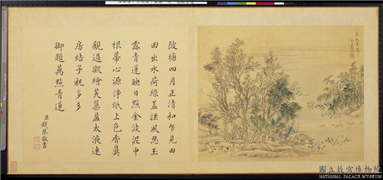 陂塘四月正清和乍見田
田出水荷綠蓋風玉
露青蓮映日點金波泥中
根蒂心源淨紙上色香
觀繪芙蕖太液連
房結子祝多多
御題萬點青蓮
臣敬書
國立故宮博物院
NATIONAL PALACE MUSEUM